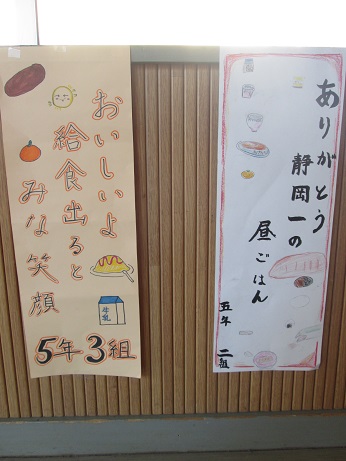 おいしいよ
給食出ると
みな笑顔
5年3組
牛乳
ありがとう
静岡一の
昼ごはん
五年 二組